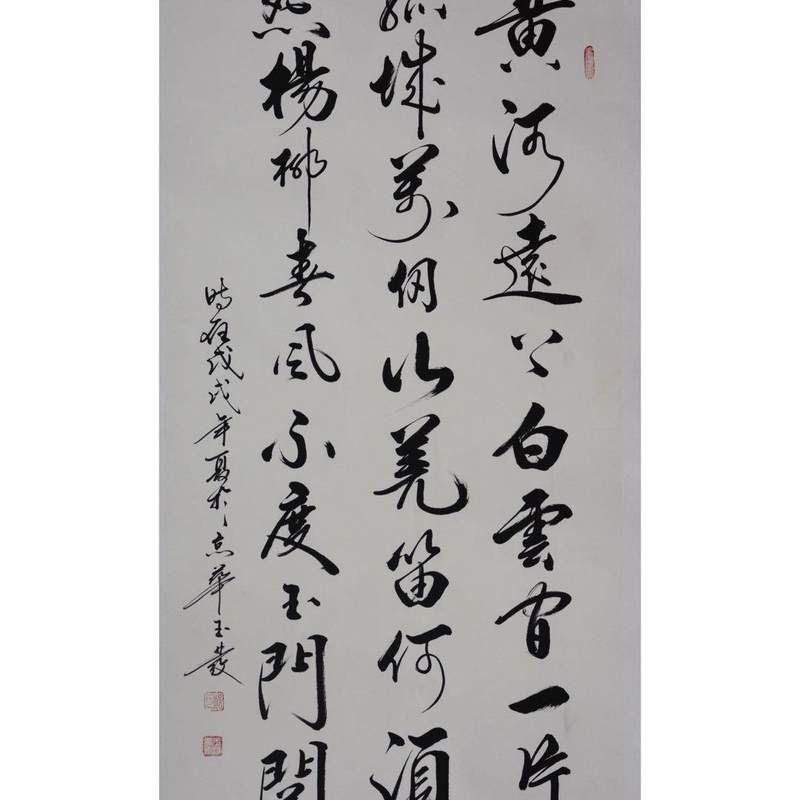 黄河遠上白雲間一片
孤城萬仞山羌笛何須
怨楊柳春風不度玉門關
時在戊戌年夏於京華玉發